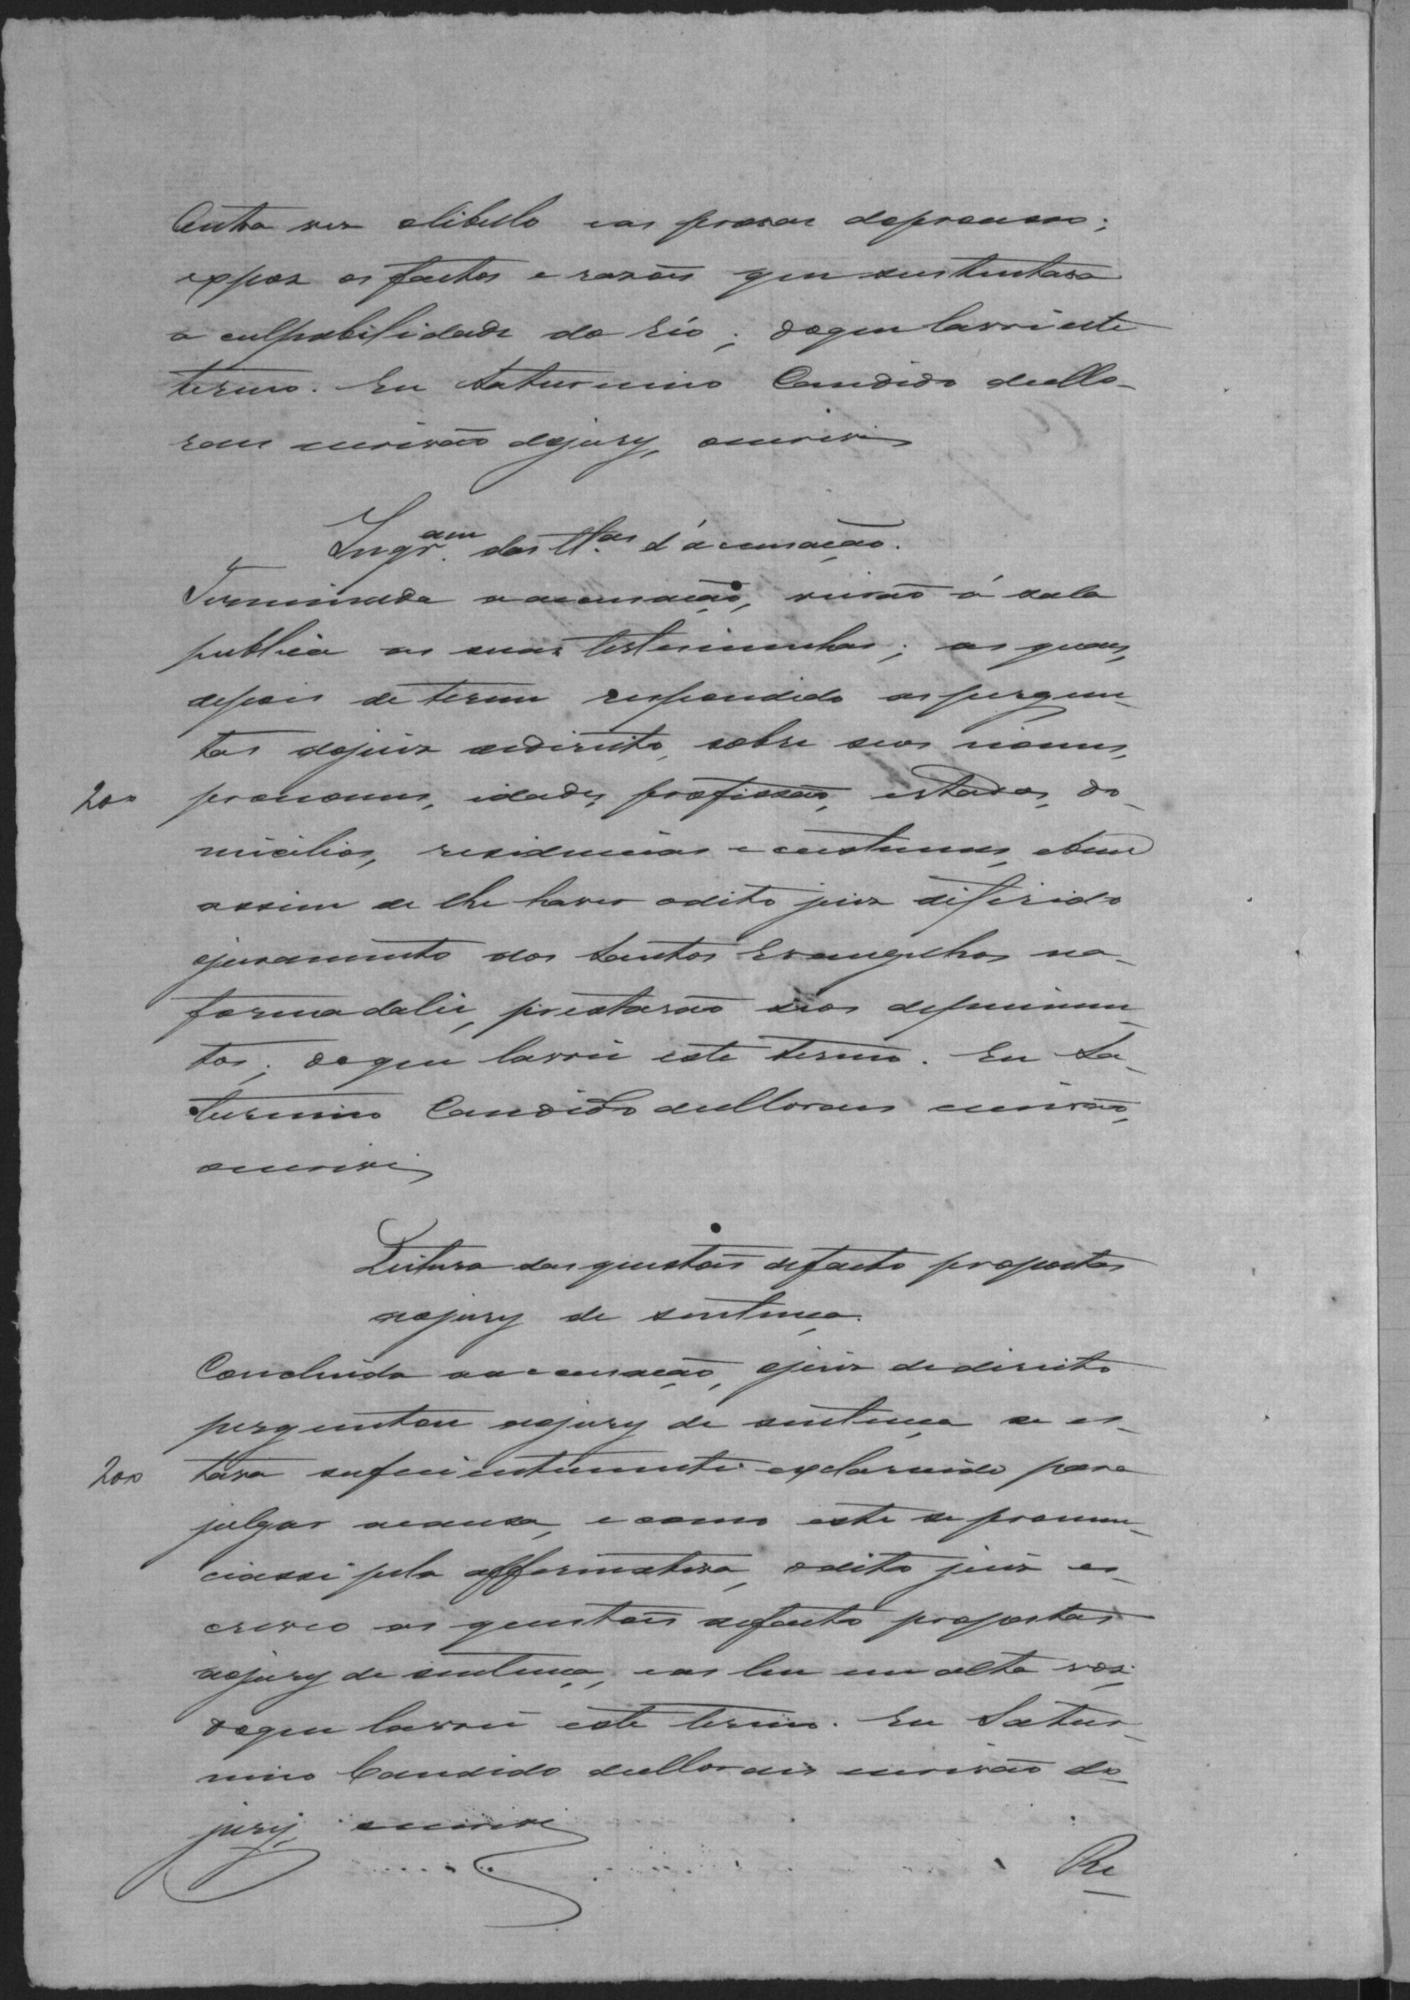 Outra vez olibello eas provas doprocesso;
expoz os factos e razões que sustentava
a culpabilidade do réo; doque lavrei este
termo. Eu Saturnino Candido de Mo-
raes escrivão dojury, oescrevi
Inqr.am das tt.as d'acusação.
Terminada aacusação, vierão á sala
publica as suas testemunhas; as quaes,
depois de terem respondido aspergun-
tas dojuiz dedireito, sobre seos nomes,
200 pronomes, idades, profissão, estados, do-
micilios, residencias e custumes, ebem
assim de lhe haver odito juiz diferido
ojuramento dos Santos Evangelhos na
forma dalei, prestarão seos depuimen-
tos; doque lavrei este termo. Eu Sa-
turnino Candido de Moraes escrivão,
oescrevi
Leitura das questões defacto propostas
aojury de sentença.
Concluida aacusação, ojuiz dedireito
perguntou aojury de sentença se es-
200 tava suficientemente exclarecido para
julgar acausa, ecomo este se pronun-
ciasse pela affirmativa, odito juiz es-
creveo as questões defacto propostas
aojury de sentença, eas leu em alta voz;
doque lavrei este termo. Eu Satur-
nino Candido de Moraes escrivão do
jury, oescrevi
Re